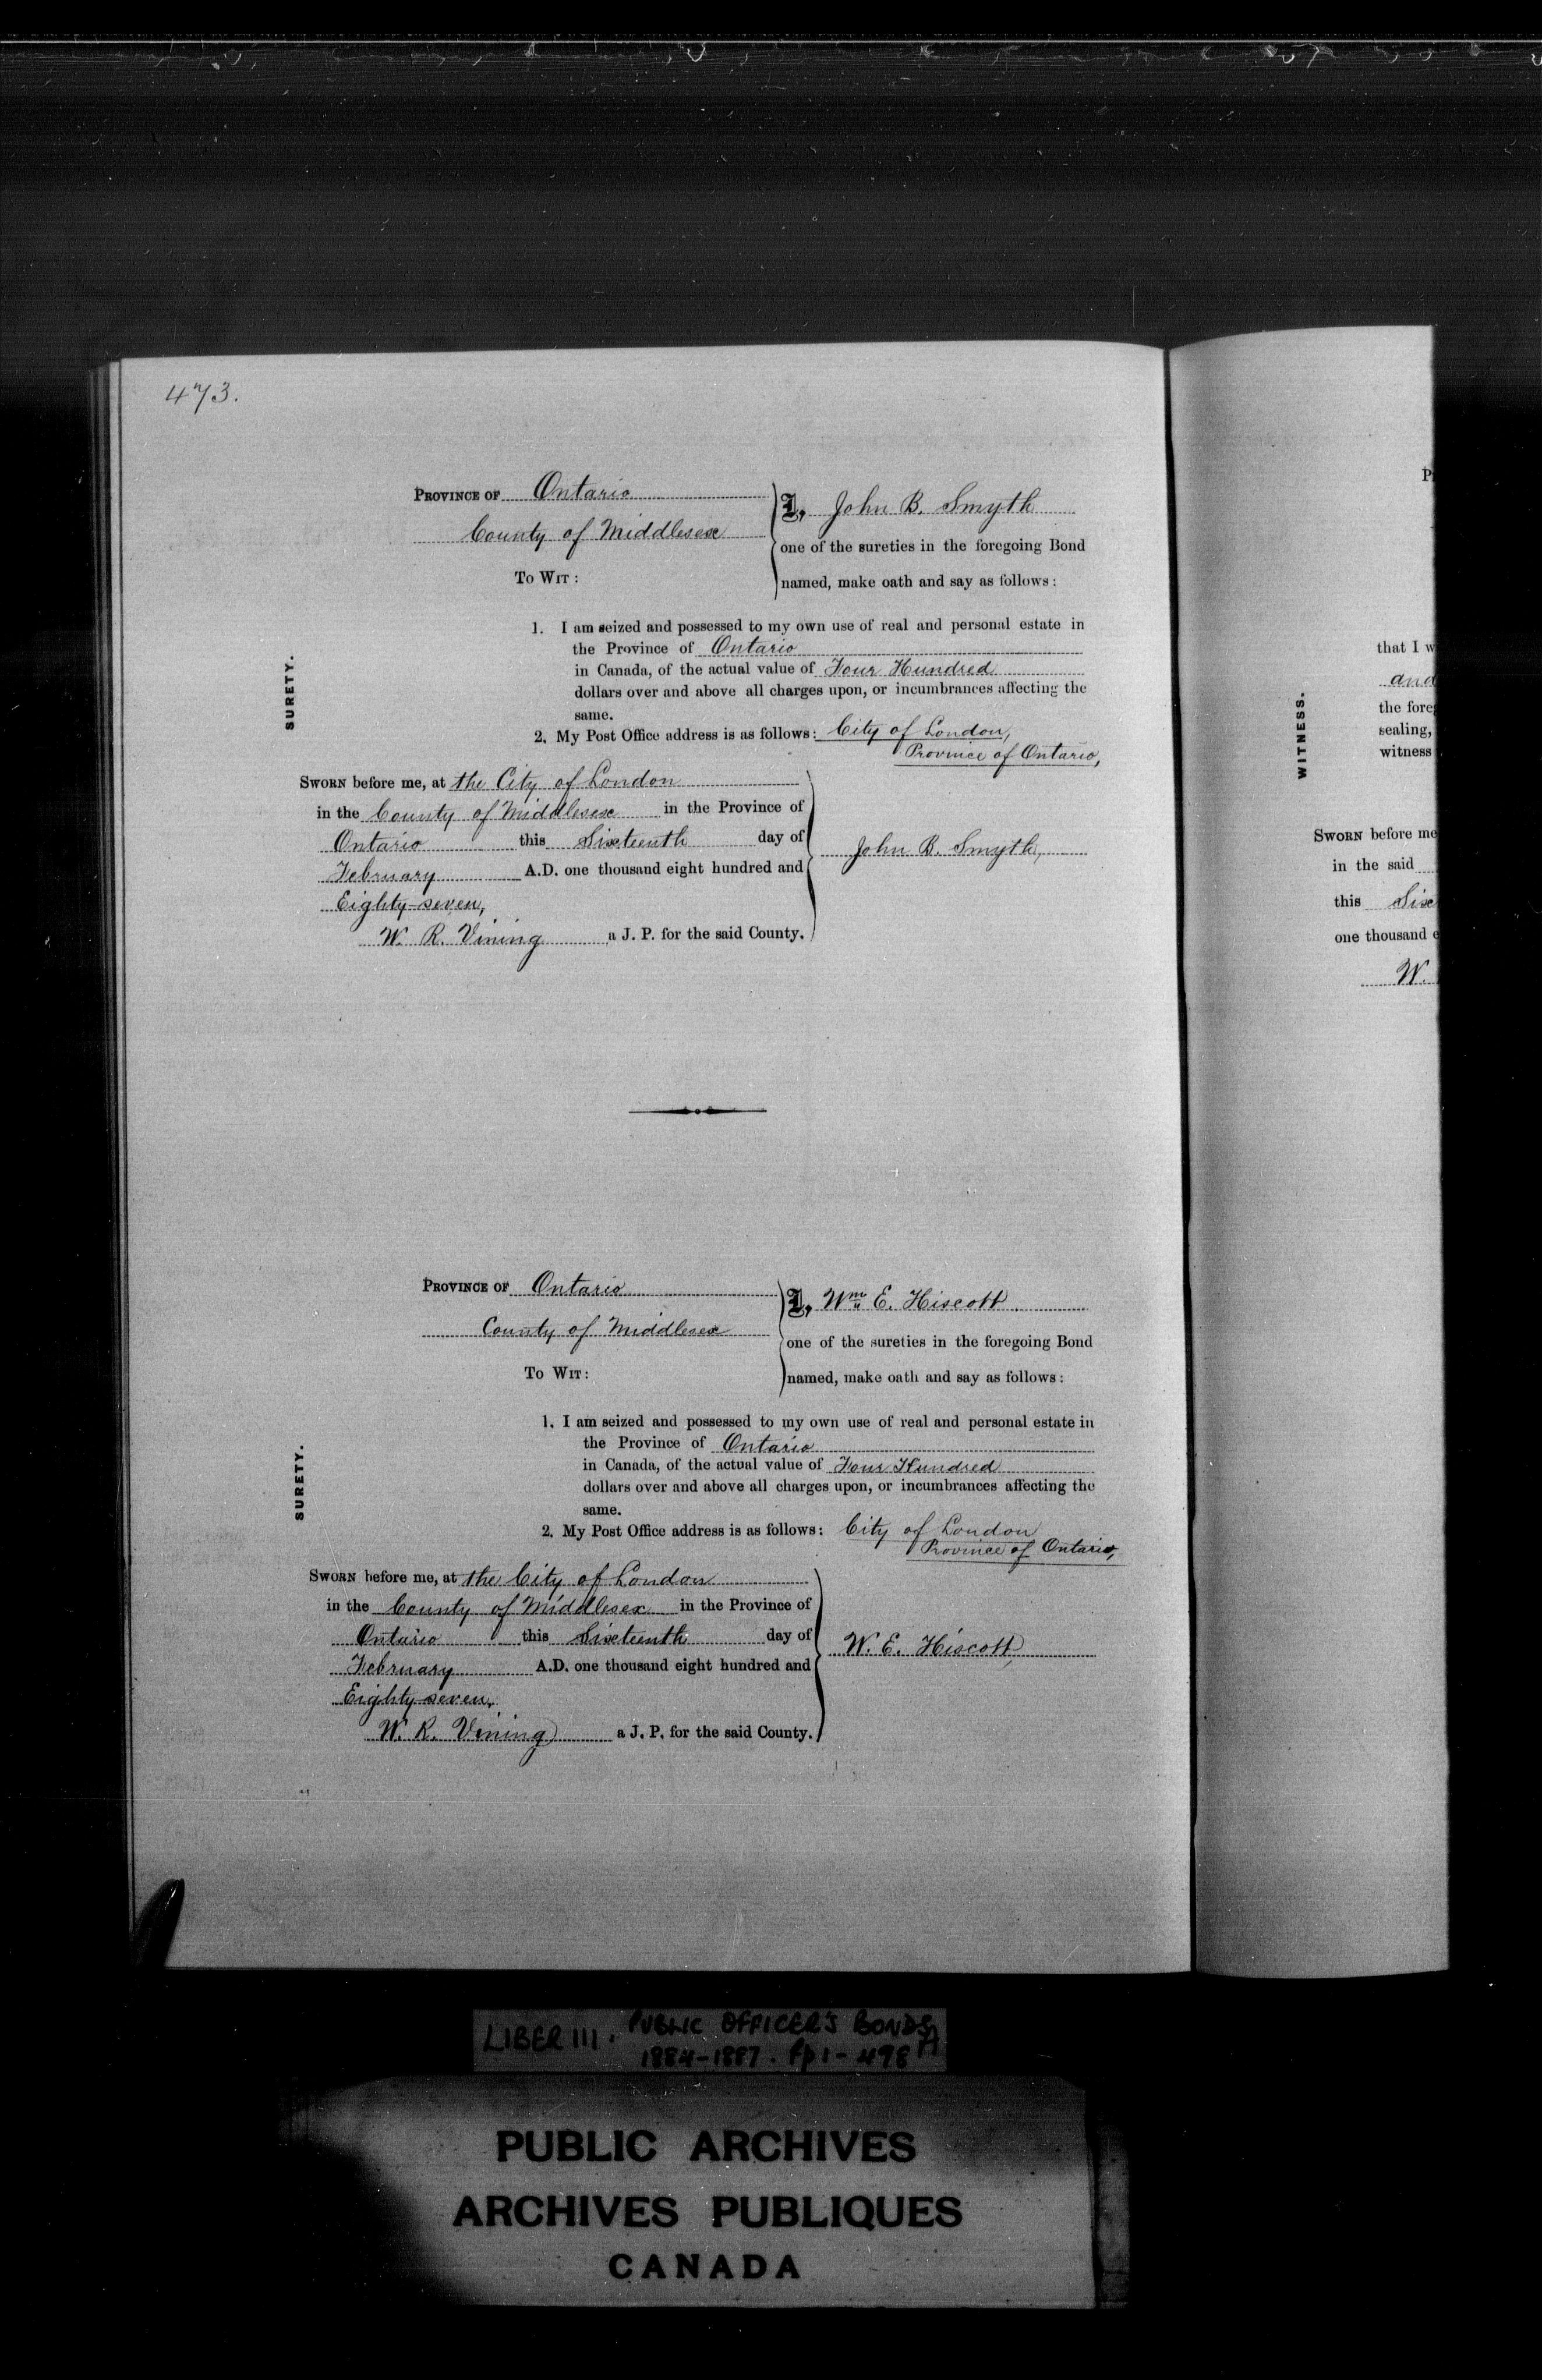 473.
PROVINCE OF Ontario
County of Middlesex
TO WIT:
I, John B. Smyth
one of the sureties in the foregoing Bond
named, make oath and say as follows:
SURETY.
1. I am seized and possessed to my own use of real and personal estate in
the Province of Ontario
in Canada, of the actual value of Four Hundred
dollars over and above all charges upon, or incumbrances affecting the
same.
2. My Post Office address is as follows: City of London,
Province of Ontario,
SWORN before me, at the City of London
in the County of Middlesex in the Province of
Ontario this Sixteenth day of
February A.D. one thousand eight hundred and
Eighty-seven,
W. R. Vining a J. P. for the said County.
John B. Smyth,
PROVINCE OF Ontario
County of Middlesex
TO WIT:
I, Wm E. Hiscott
one of the sureties in the foregoing Bond
named, make oath and say as follows:
SURETY.
1. I am seized and possessed to my own use of real and personal estate in
the Province of Ontario
in Canada, of the actual value of Four Hundred
dollars over and above all charges upon, or incumbrances affecting the
same.
2. My Post Office address is as follows: City of London
Province of Ontario,
SWORN before me, at the City of London
in the County of Middlesex in the Province of
Ontario this Sixteenth day of
February A.D. one thousand eight hundred and
Eighty-seven,
W. R. Vining a J. P. for the said County.
W. E. Hiscott,
P
that I w
and
the fore
sealing,
witness
WITNESS.
SWORN before me
in the said
this Six
one thousand e
W.
LIBER III. PUBLIC OFFICER'S BONDS
1884-1887. fp 1-498
PUBLIC ARCHIVES
ARCHIVES PUBLIQUES
CANADA